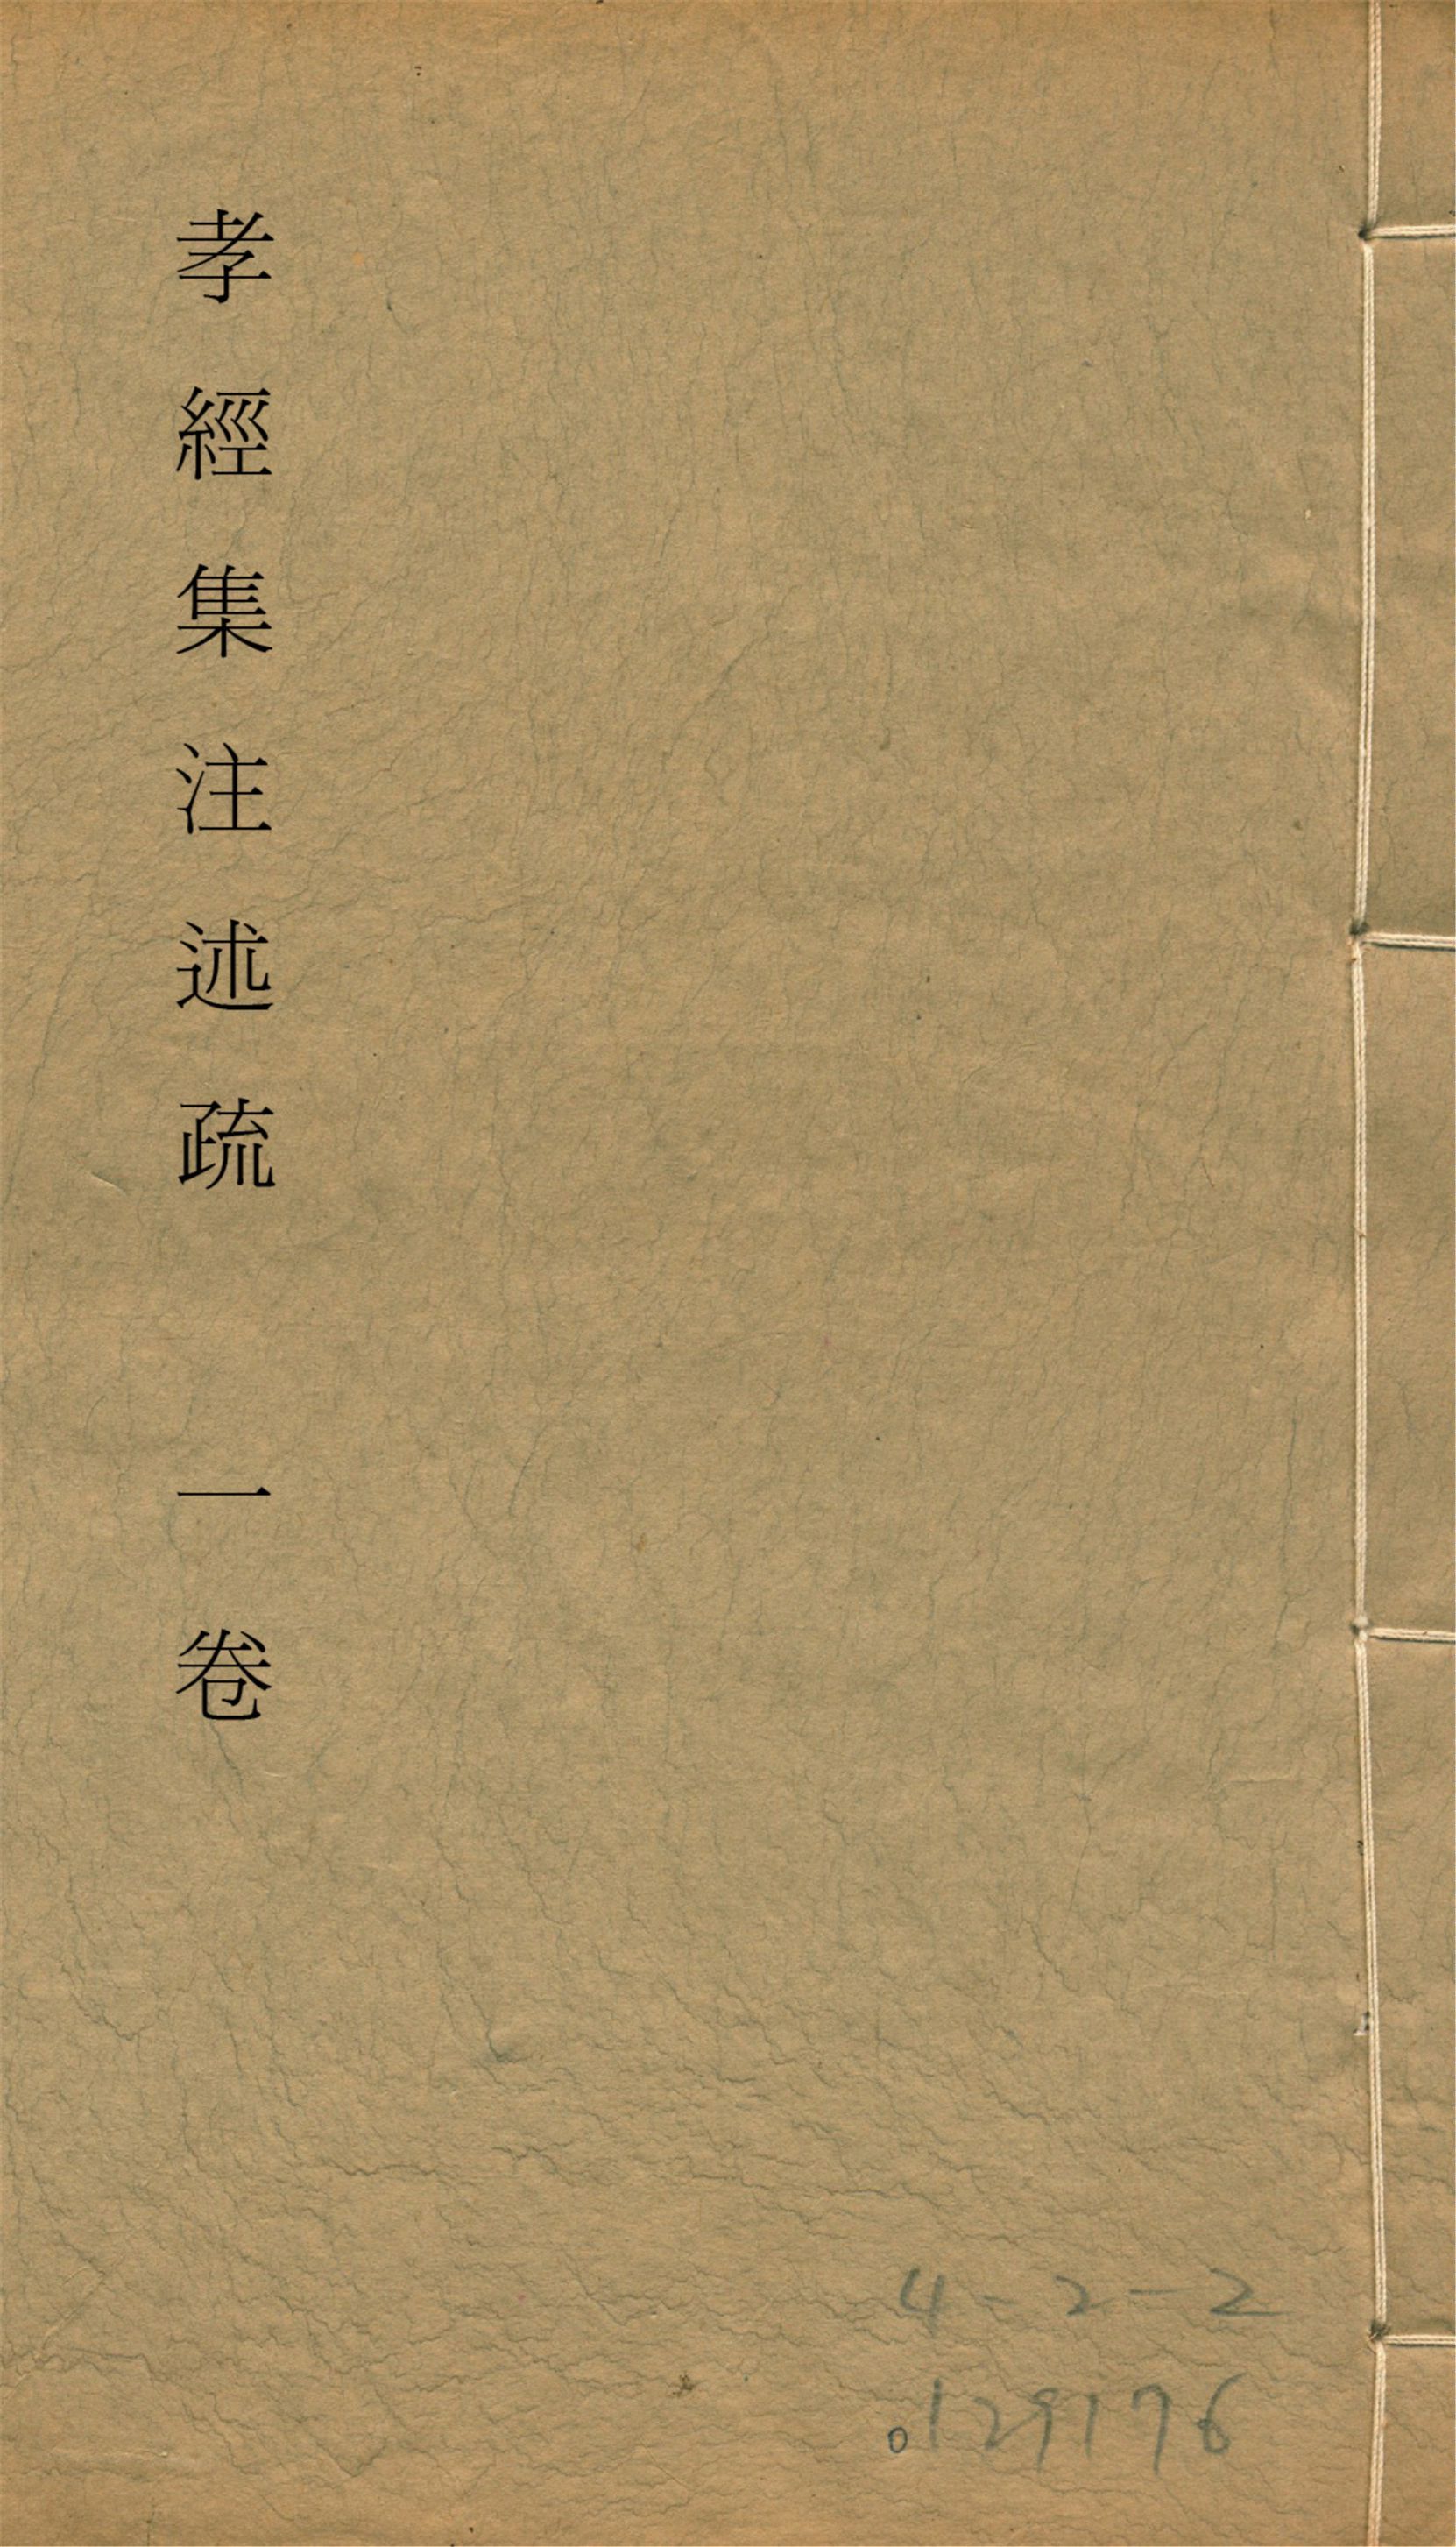 孝經集注述疏 一卷
4-2-2
0129176